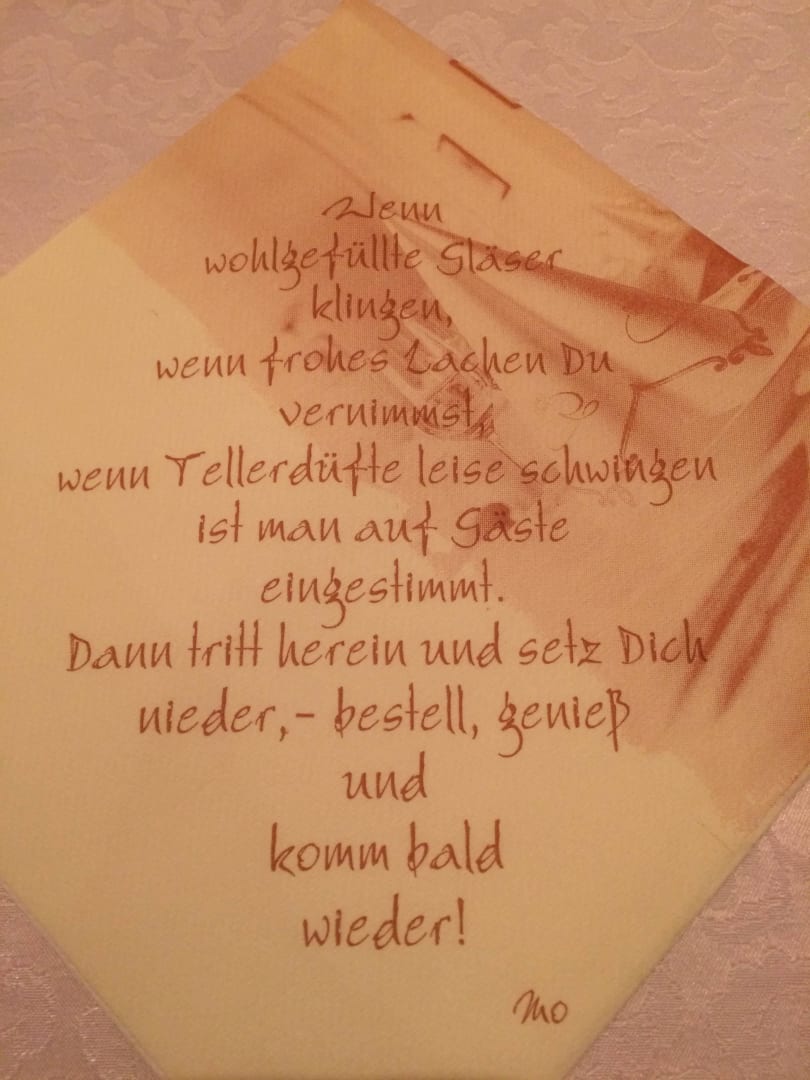 Wenn
wohlgefüllte Gläser
klingen,
wenn frohes Lachen Du
vernimmst,
wenn Tellerdüfte leise schwingen
ist man auf Gäste
eingestimmt.
Dann tritt herein und setz Dich
nieder,- bestell, genieß
und
komm bald
wieder!
Mo